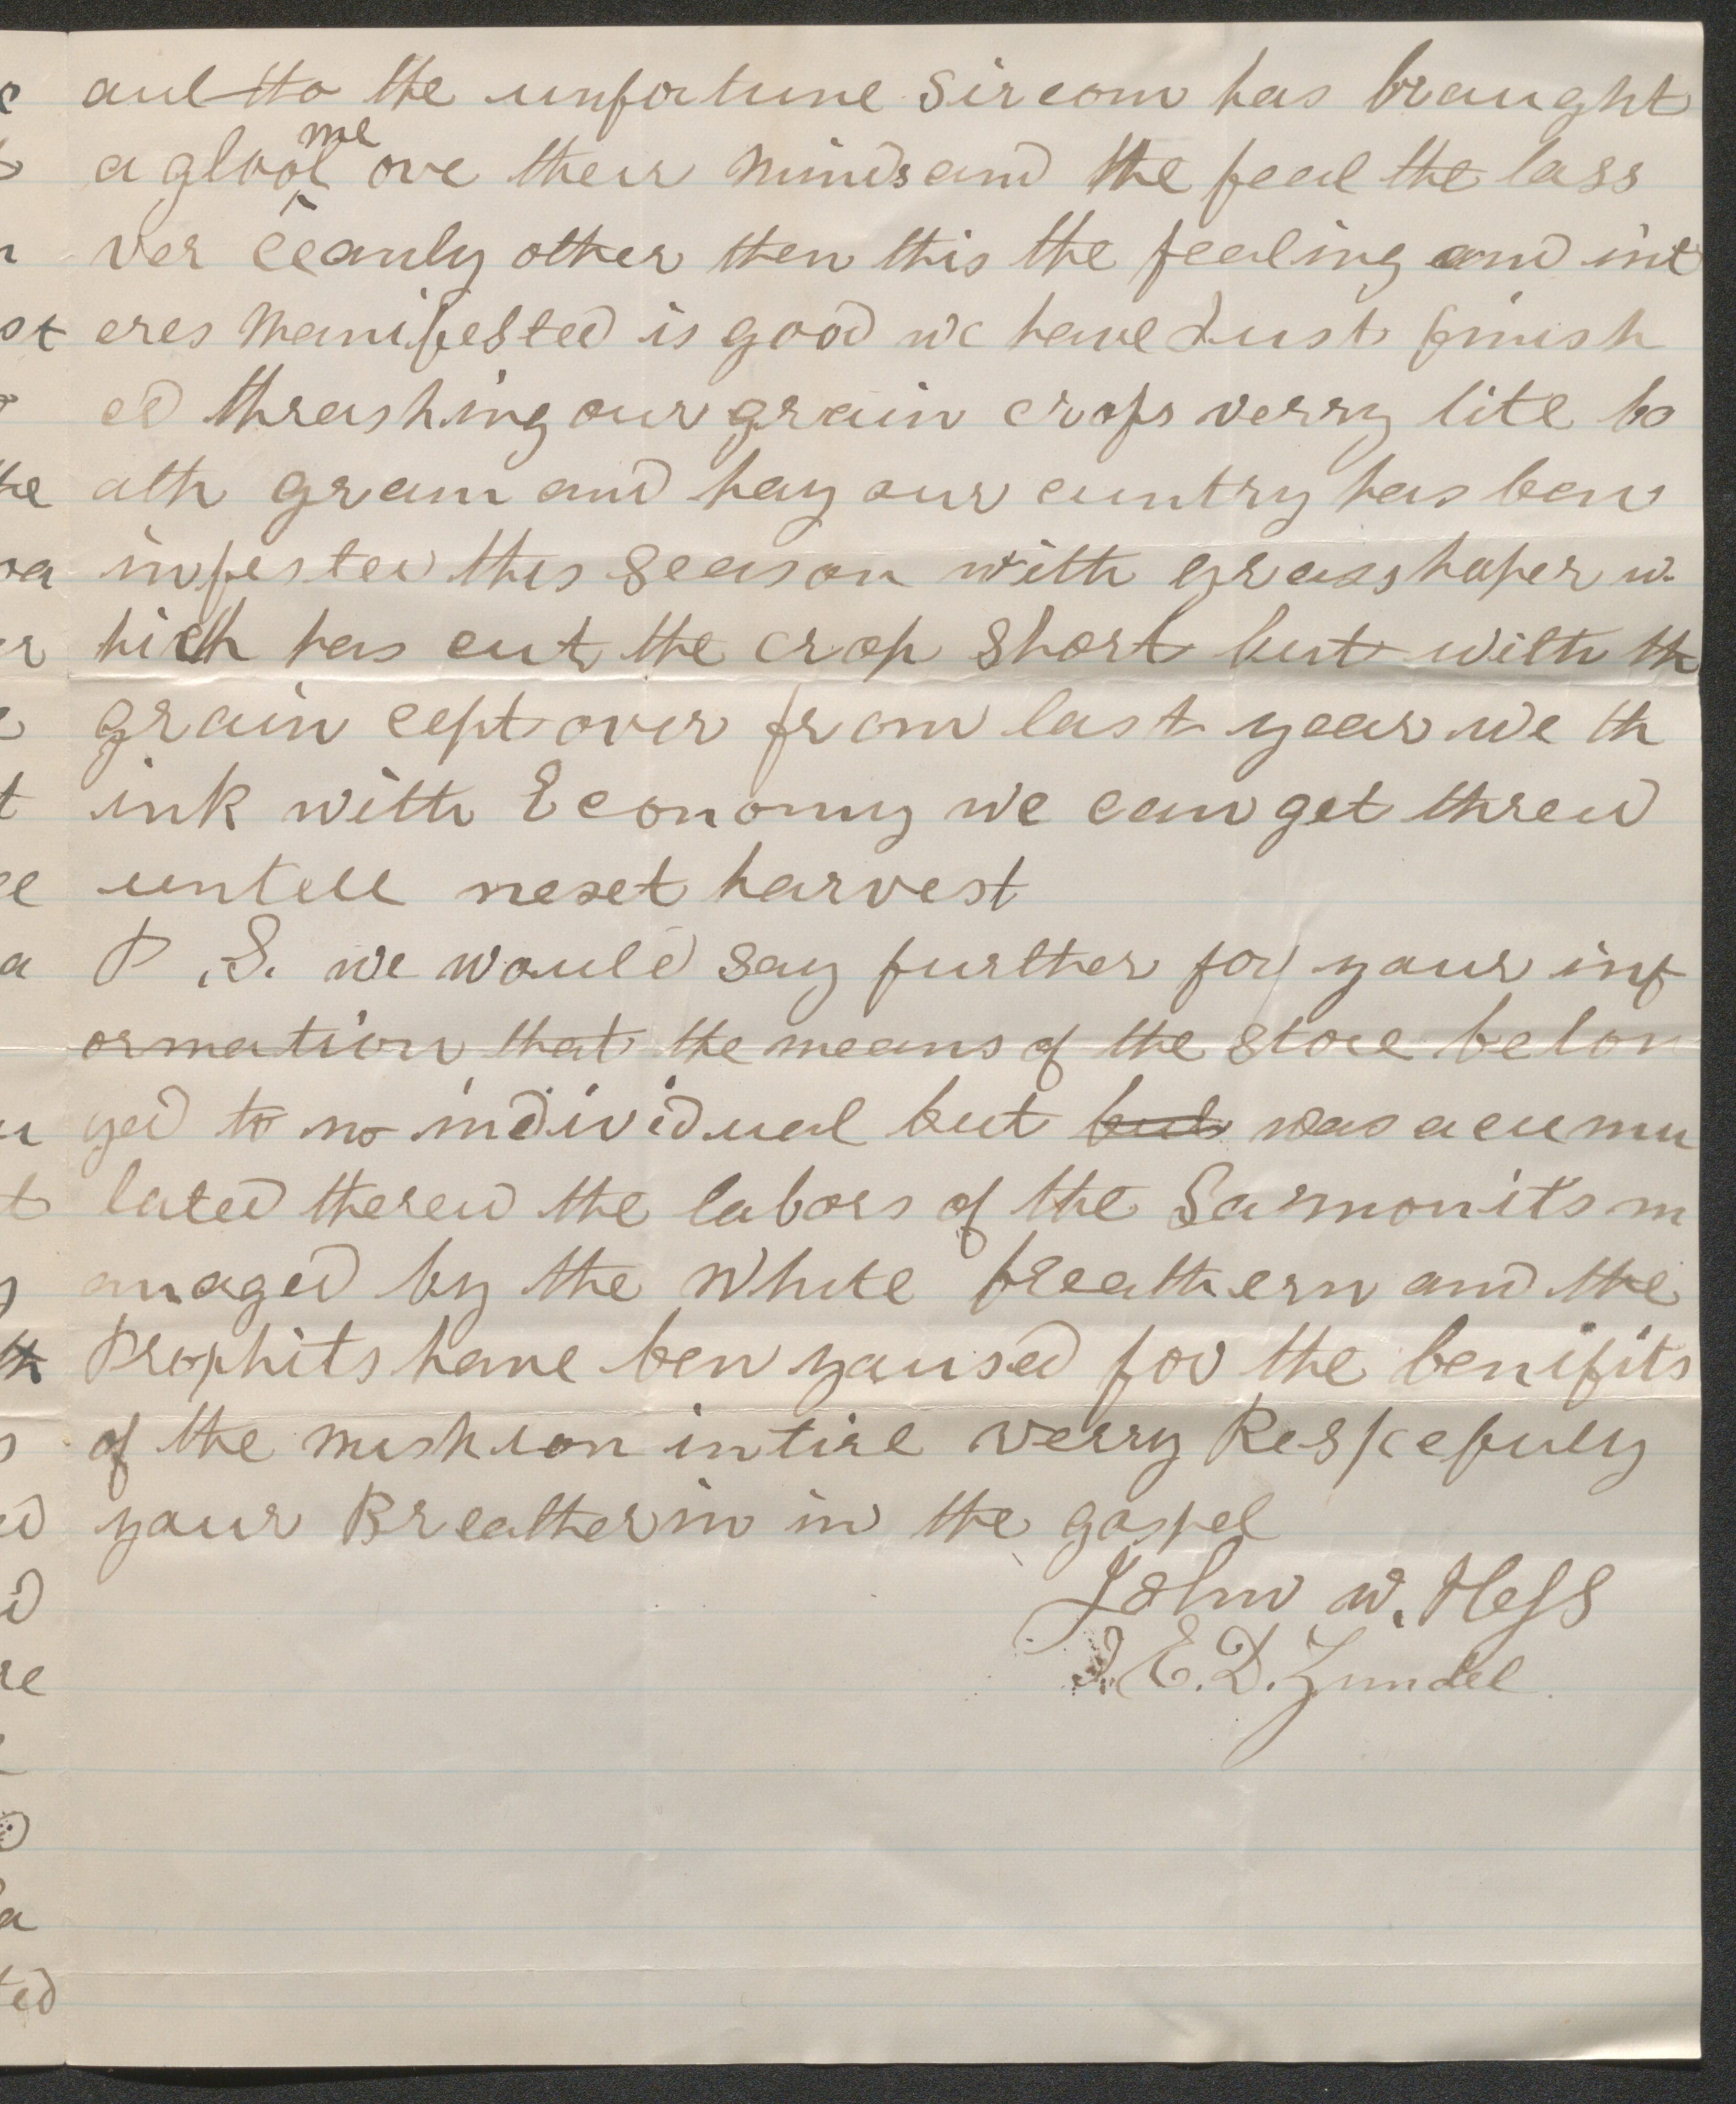 and tto the unfortune Sircom has braught
a gloome ove their minds and the feeal the lass
ver ceanly other then this the fealing and int
eres Manifested is good we have Just finish
ed thrashing our grain crops verry litl bo
ath grain and hay our cuntry has ben
infested this Season with grasshaper w
hich has cut the crop Short but with th
grain cept over from last year we th
ink with Economy we can get threw
untell nexet harvest
P.S. we would Say further for your inf
ormation that the means of the Store belon
ged to no individual but but was acumu
lated therew the labors of the Larmonits m
anaged by the White breathern and the
Prophits have ben yaused for the benifits
of the mishion intire verry Respcefuly
your Breatherin in the gospel
John W. Hess
I. E. D. Zundel